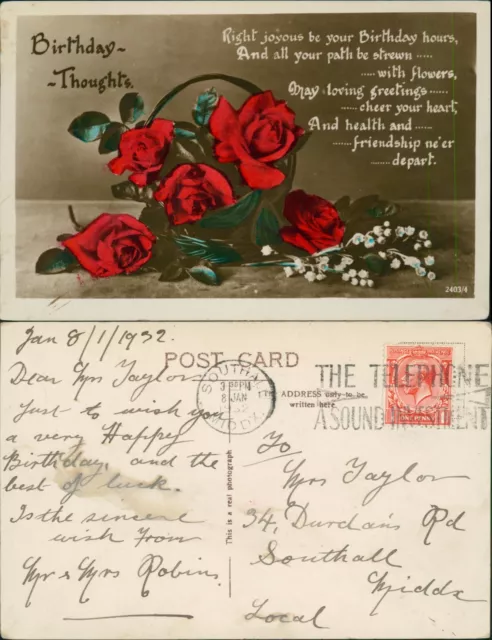 Birthday~
~Thoughts.
Right joyous be your Birthday hours,
And all your path be strewn .....
.....with flowers,
May loving greetings......
......cheer your heart,
And health and .....
......friendship ne'er
........depart.
2403/4
Jan 8/1/1932.
POST CARD
Dear Mrs Taylor
Just to wish you
a very Happy
Birthday, and the
best of luck.
Is the sincere
wish from
Mr & Mrs Robins.
This is a real photograph
SOUTHALL
8 JAN
MIDDX
ADDRESS only to be
written here.
THE TELEPHONE
A SOUND INVESTMENT
To
Mrs Taylor
34, Durdans Rd
Southall
Middx
Local